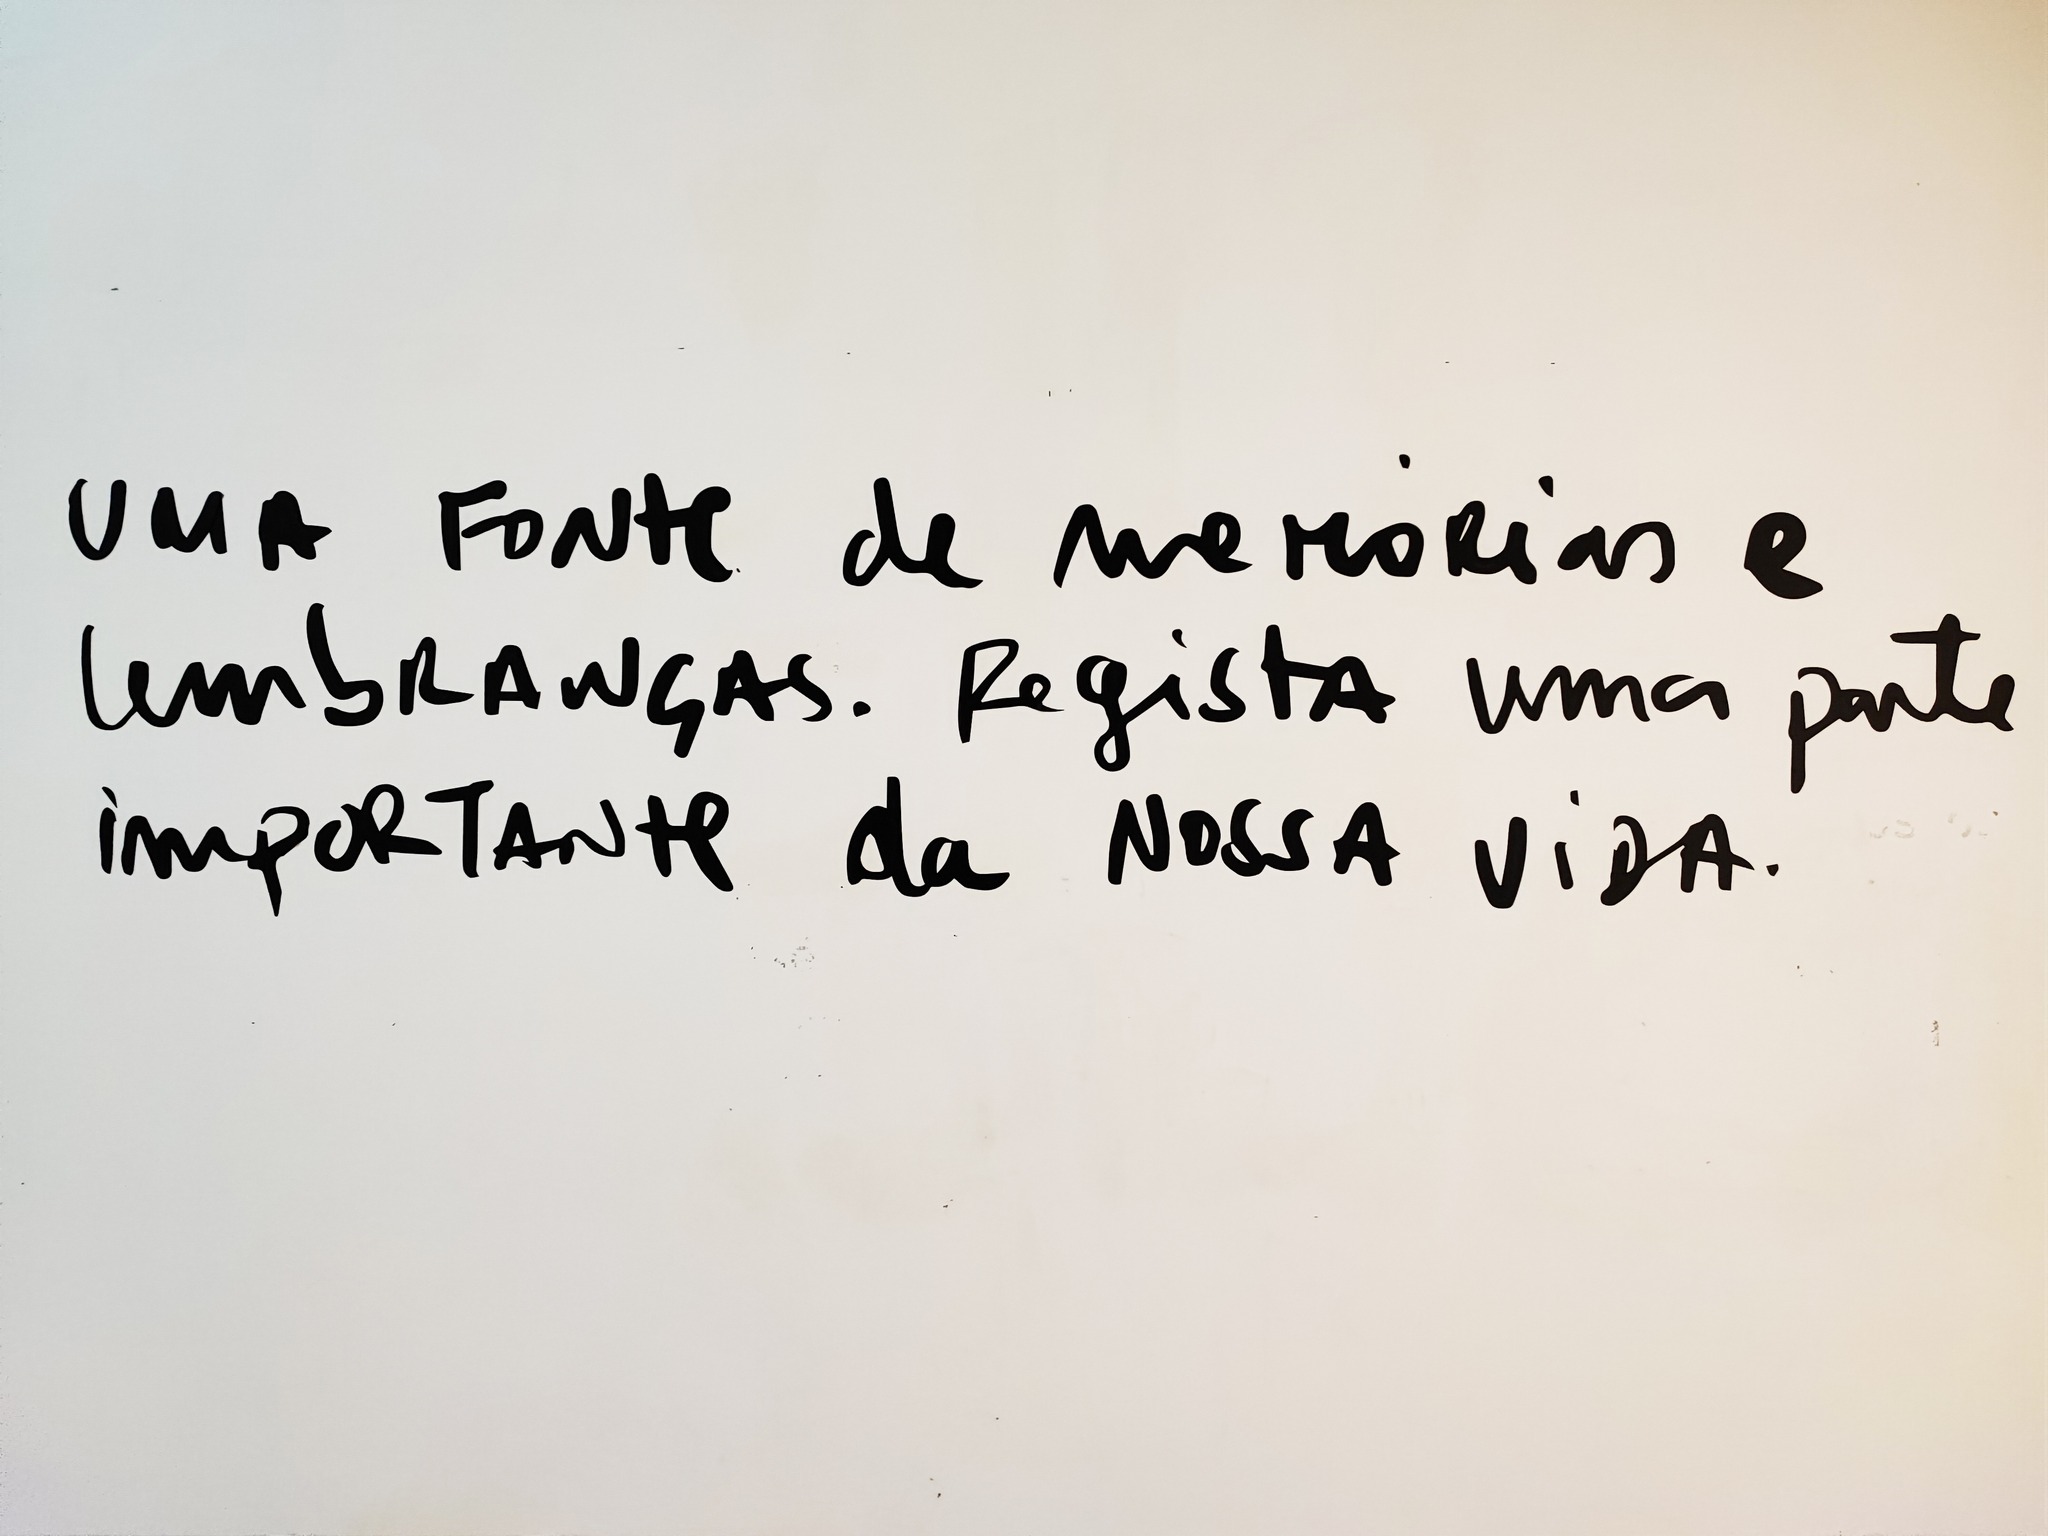 UMA FONte de memóRias e
lembRANÇAS. Regista uma parte
impORTANte da NOSSA ViDA.